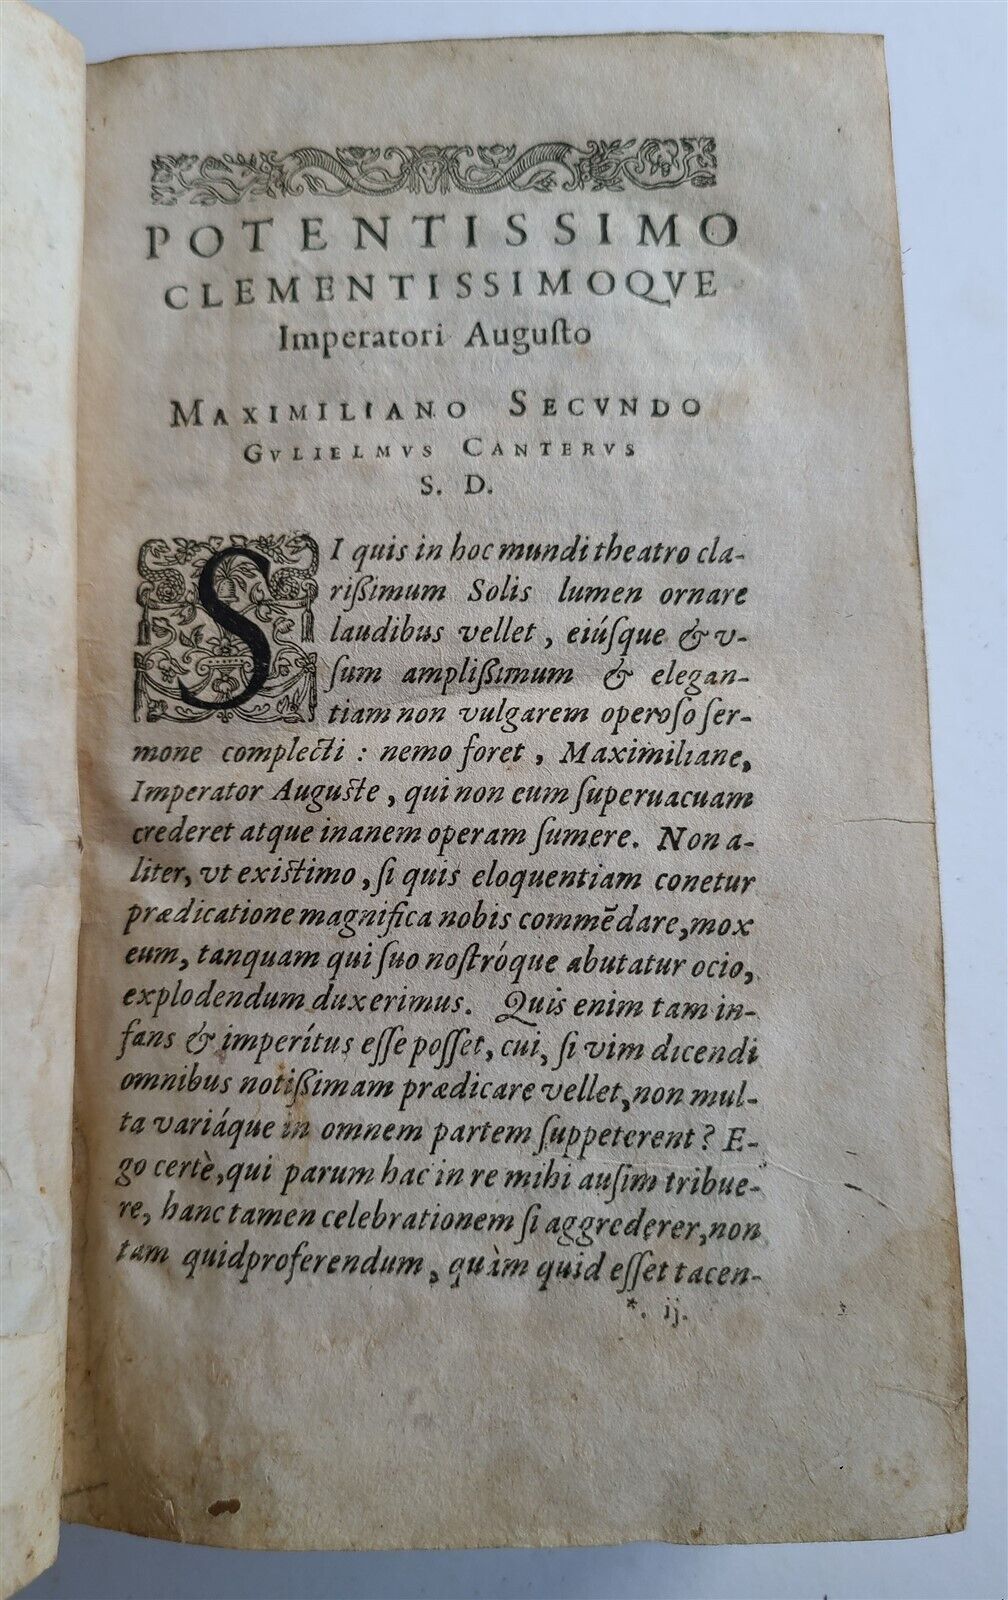 POTENTISSIMO
CLEMENTISSIMOQVE
Imperatori Auguſto
MAXIMILIANO SECVNDO
GVLIELMVS CANTERVS
S. D.
SI quis in hoc mundi theatro cla-
rißimum Solis lumen ornare
laudibus vellet, eiúſque & v-
ſum amplißimum & elegan-
tiam non vulgarem operoſo ſer-
mone complecti : nemo foret, Maximiliane,
Imperator Auguſte, qui non eum ſuperuacuam
crederet atque inanem operam ſumere. Non a-
liter, vt exiſtimo, ſi quis eloquentiam conetur
prædicatione magnifica nobis commēdare, mox
eum, tanquam qui ſuo noſtróque abutatur ocio,
explodendum duxerimus. Quis enim tam in-
fans & imperítus eſſe poſſet, cui, ſi vim dicendi
omnibus notißimam prædicare vellet, non mul-
ta variáque in omnem partem ſuppeterent? E-
go certè, qui parum hac in re mihi auſim tribue-
re, hanc tamen celebrationem ſi aggrederer, non
tam quid proferendum, quàm quid eſſet tacen-
*. ij.